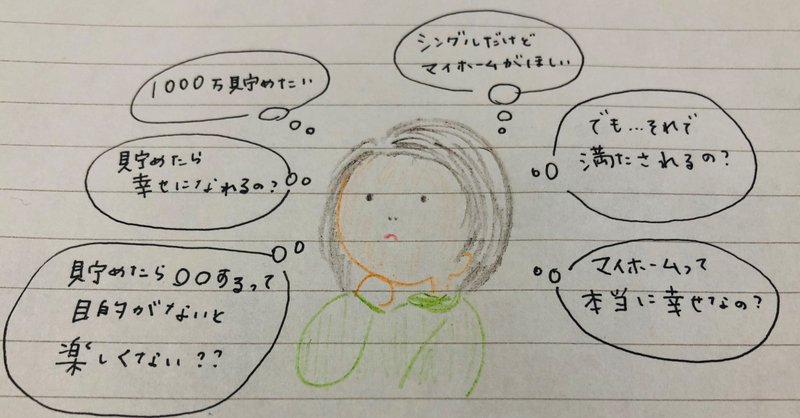 1000万貯めたい
貯めたら
幸せになれるの?
貯めたら〇〇するって
目的がないと
楽しくない??
シングルだけど
マイホームがほしい
でも…それで
満たされるの?
マイホームって
本当に幸せなの?